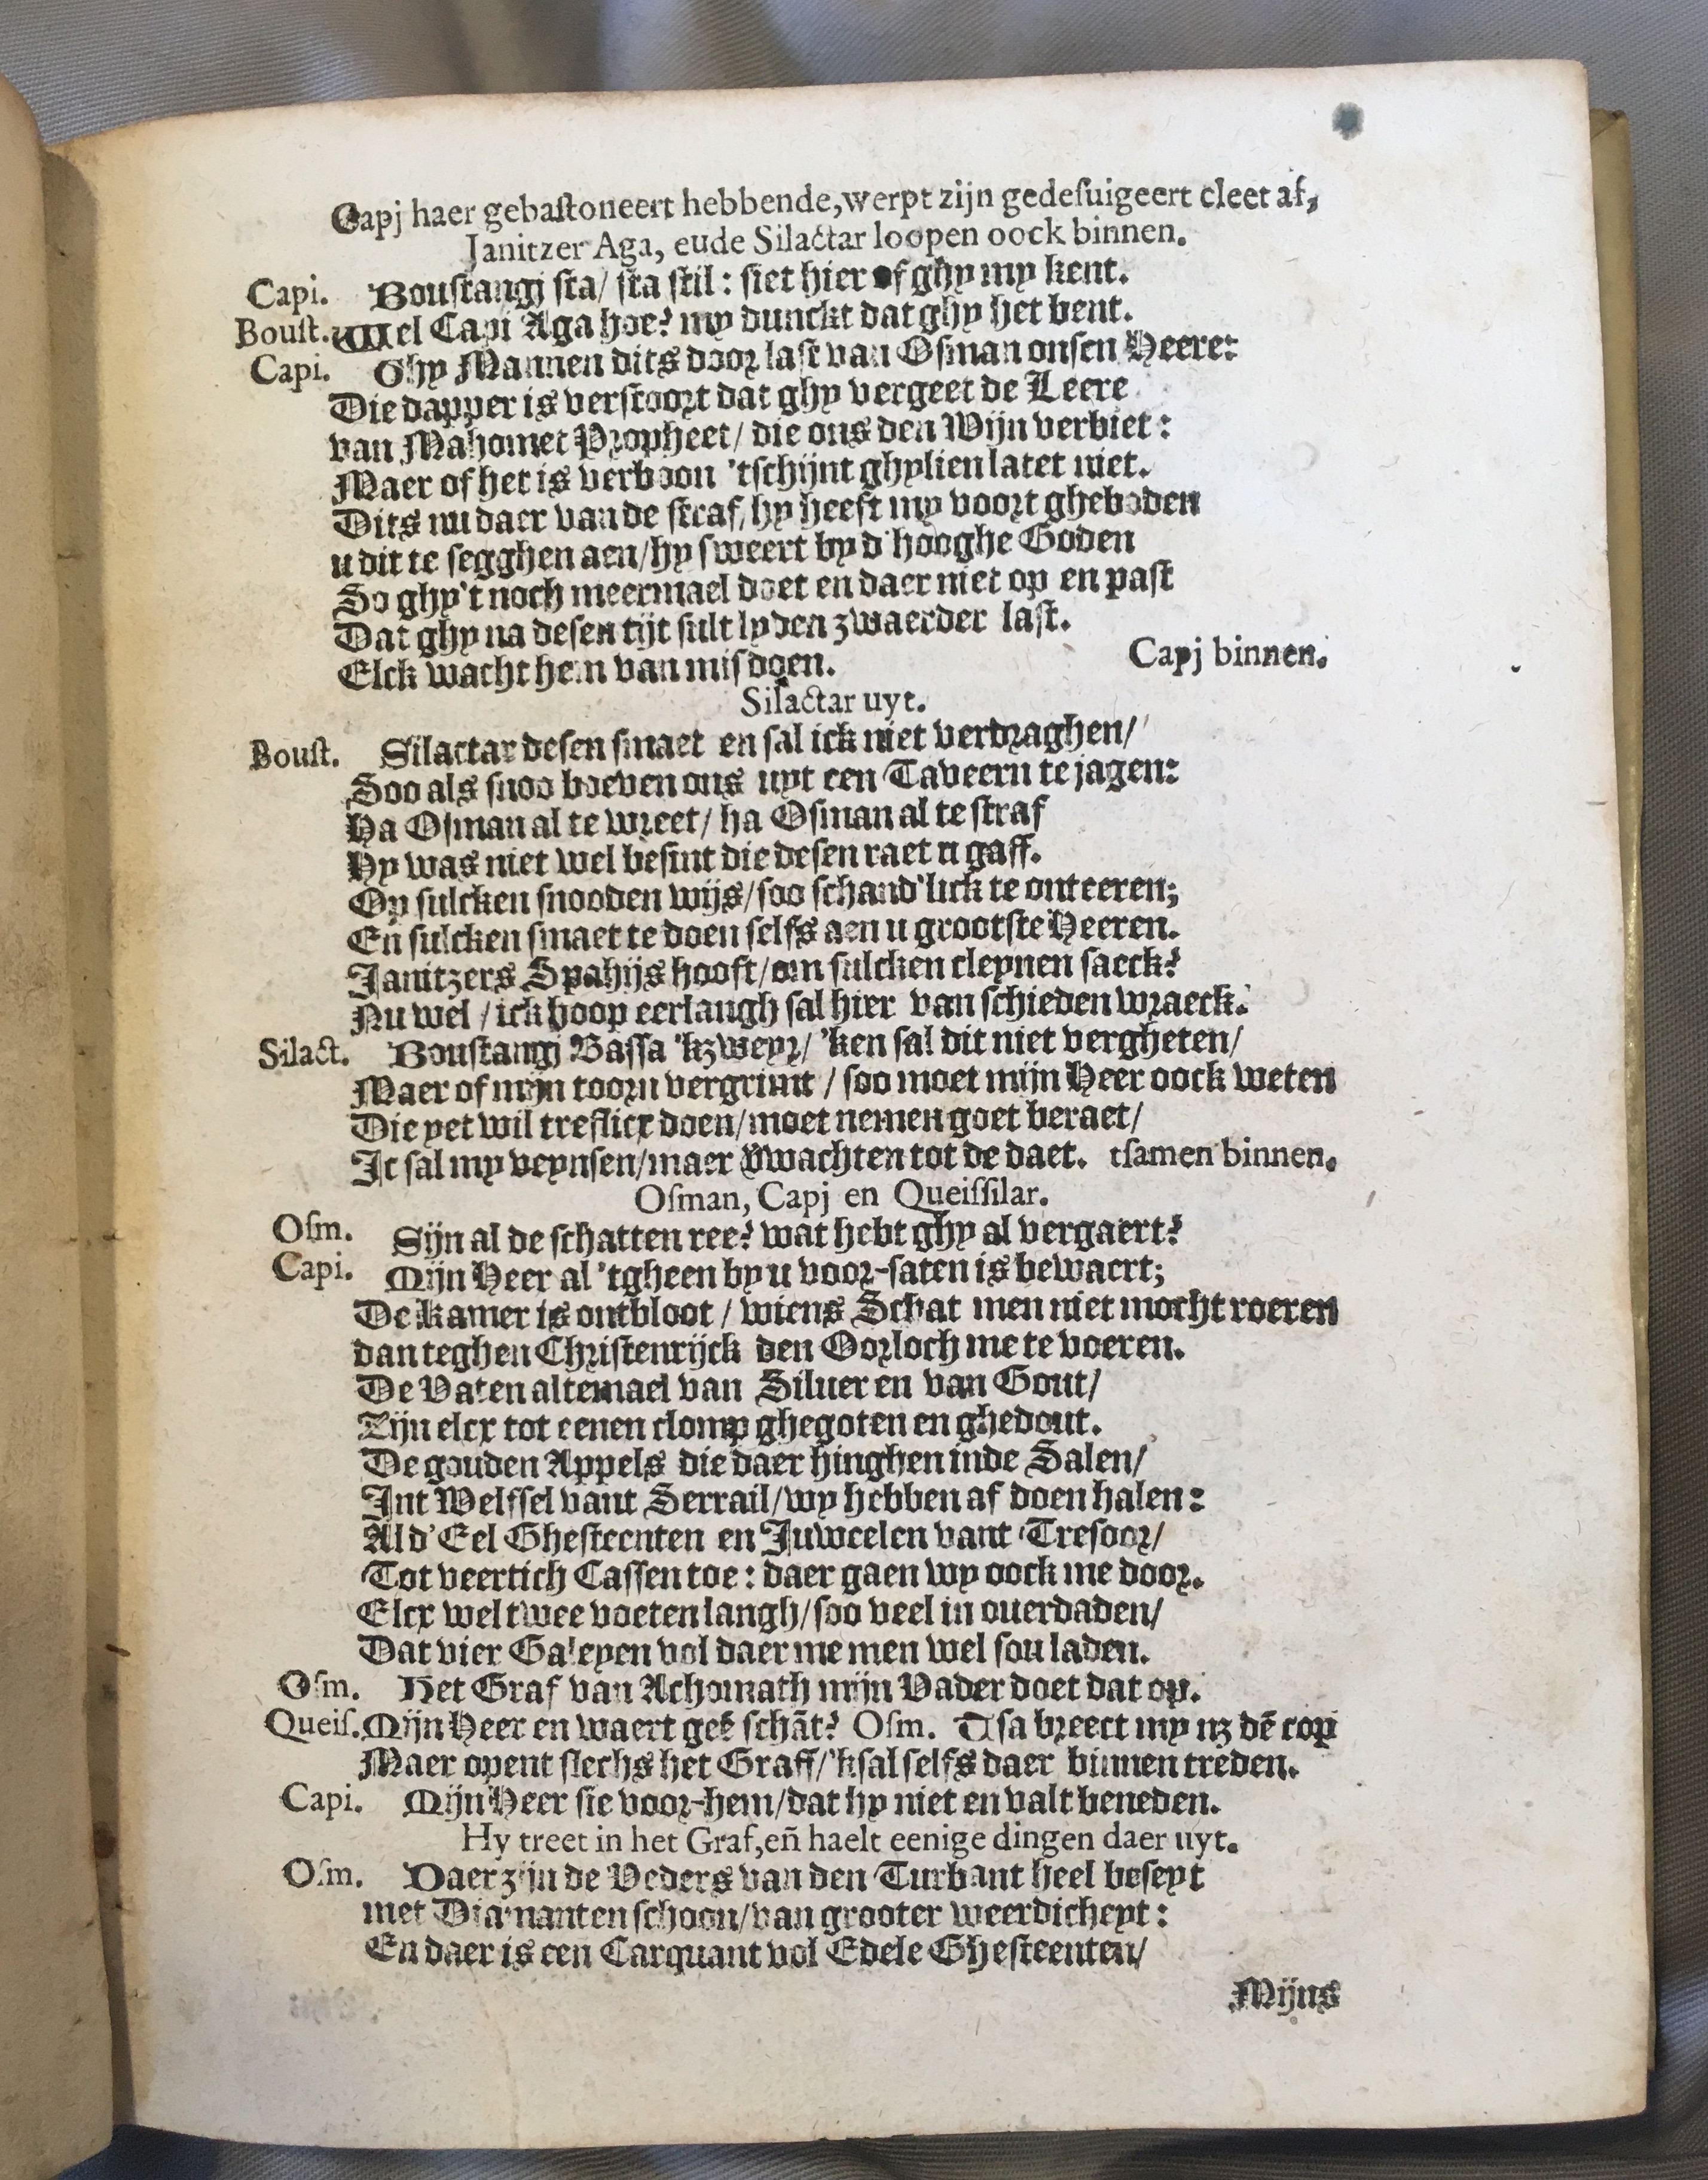 Capj haer gebastoneert hebbende, werpt zijn gedesuigeert cleet af,
Janitzer Aga, eude Silactar loopen oock binnen.
Capi. Boustangj sta/ sta stil: siet hier of ghy my kent.
Boust. Wel Capi Aga hoe? my dunckt dat ghy het bent.
Capi. Ghy Mannen dits door last van Osman onsen Heere:
Die dapper is verstoort dat ghy vergeet de Leere
van Mahomet Propheet/ die ons den Wijn verbiet:
Maer of het is verboon 'tschijnt ghylien latet niet.
Dits nu daer van de straf/ hy heeft my voort gheboden
u dit te segghen aen/ hy sweert by d'hooghe Goden
So ghy't noch meermael doet en daer niet op en past
Dat ghy na desen tijt sult lyden zwaerder last.
Elck wacht hem van misdoen. Capj binnen.
Silactar uyt.
Boust. Silactar desen smaet en sal ick niet verdraghen/
Soo als snoo boeven ons uyt een Taveern te jagen:
Ha Osman al te wreet/ ha Osman al te straf
Hy was niet wel besint die desen raet u gaff.
Op sulcken snooden wijs/ soo schand'lick te onteeren;
En sulcken smaet te doen selfs aen u grootste Heeren.
Janitzers Spahijs hooft/ om sulcken cleynen saeck?
Nu wel / ick hoop eerlaugh sal hier van schieden wraeck.
Silact. Boustangj Bassa 'kzweyr/ 'ken sal dit niet vergheten/
Maer of mijn toorn vergrimt / soo moet mijn Heer oock weten
Die yet wil treflicx doen/ moet nemen goet beraet/
Ic sal my veynsen/ maer wachten tot de daet. tsamen binnen.
Osman, Capj en Queissilar.
Osm. Sijn al de schatten ree? wat hebt ghy al vergaert?
Capi. Mijn Heer al 'tgheen by u voor-saten is bewaert;
De kamer is ontbloot / wiens Schat men niet mocht roeren
dan teghen Christenrijck den Oorloch me te voeren.
De Vaten altemael van Siluer en van Gout/
Zijn elcx tot eenen clomp ghegoten en ghedout.
De gouden Appels die daer hinghen inde Salen/
Int Welfsel vant Serrail/ wy hebben af doen halen:
Al d'Eel Ghesteenten en Juweelen vant Tresoor/
Tot veertich Cassen toe: daer gaen wy oock me door.
Elcx wel twee voeten langh/ soo veel in ouerdaden/
Dat vier Galeyen vol daer me men wel sou laden.
Osm. Het Graf van Achomath mijn Vader doet dat op.
Queis. Mijn Heer en waert geē schāt? Osm. Tsa breect my nz dē cop
Maer opent slechs het Graff/ 'ksal selfs daer binnen treden.
Capi. Mijn Heer sie voor-hem/ dat hy niet en valt beneden.
Hy treet in het Graf, eñ haelt eenige dingen daer uyt.
Osm. Daer zijn de Veders van den Turbant heel beseyt
met Diamanten schoon/ van grooter weerdicheyt:
En daer is een Carquant vol Edele Ghesteenten/
Mijns